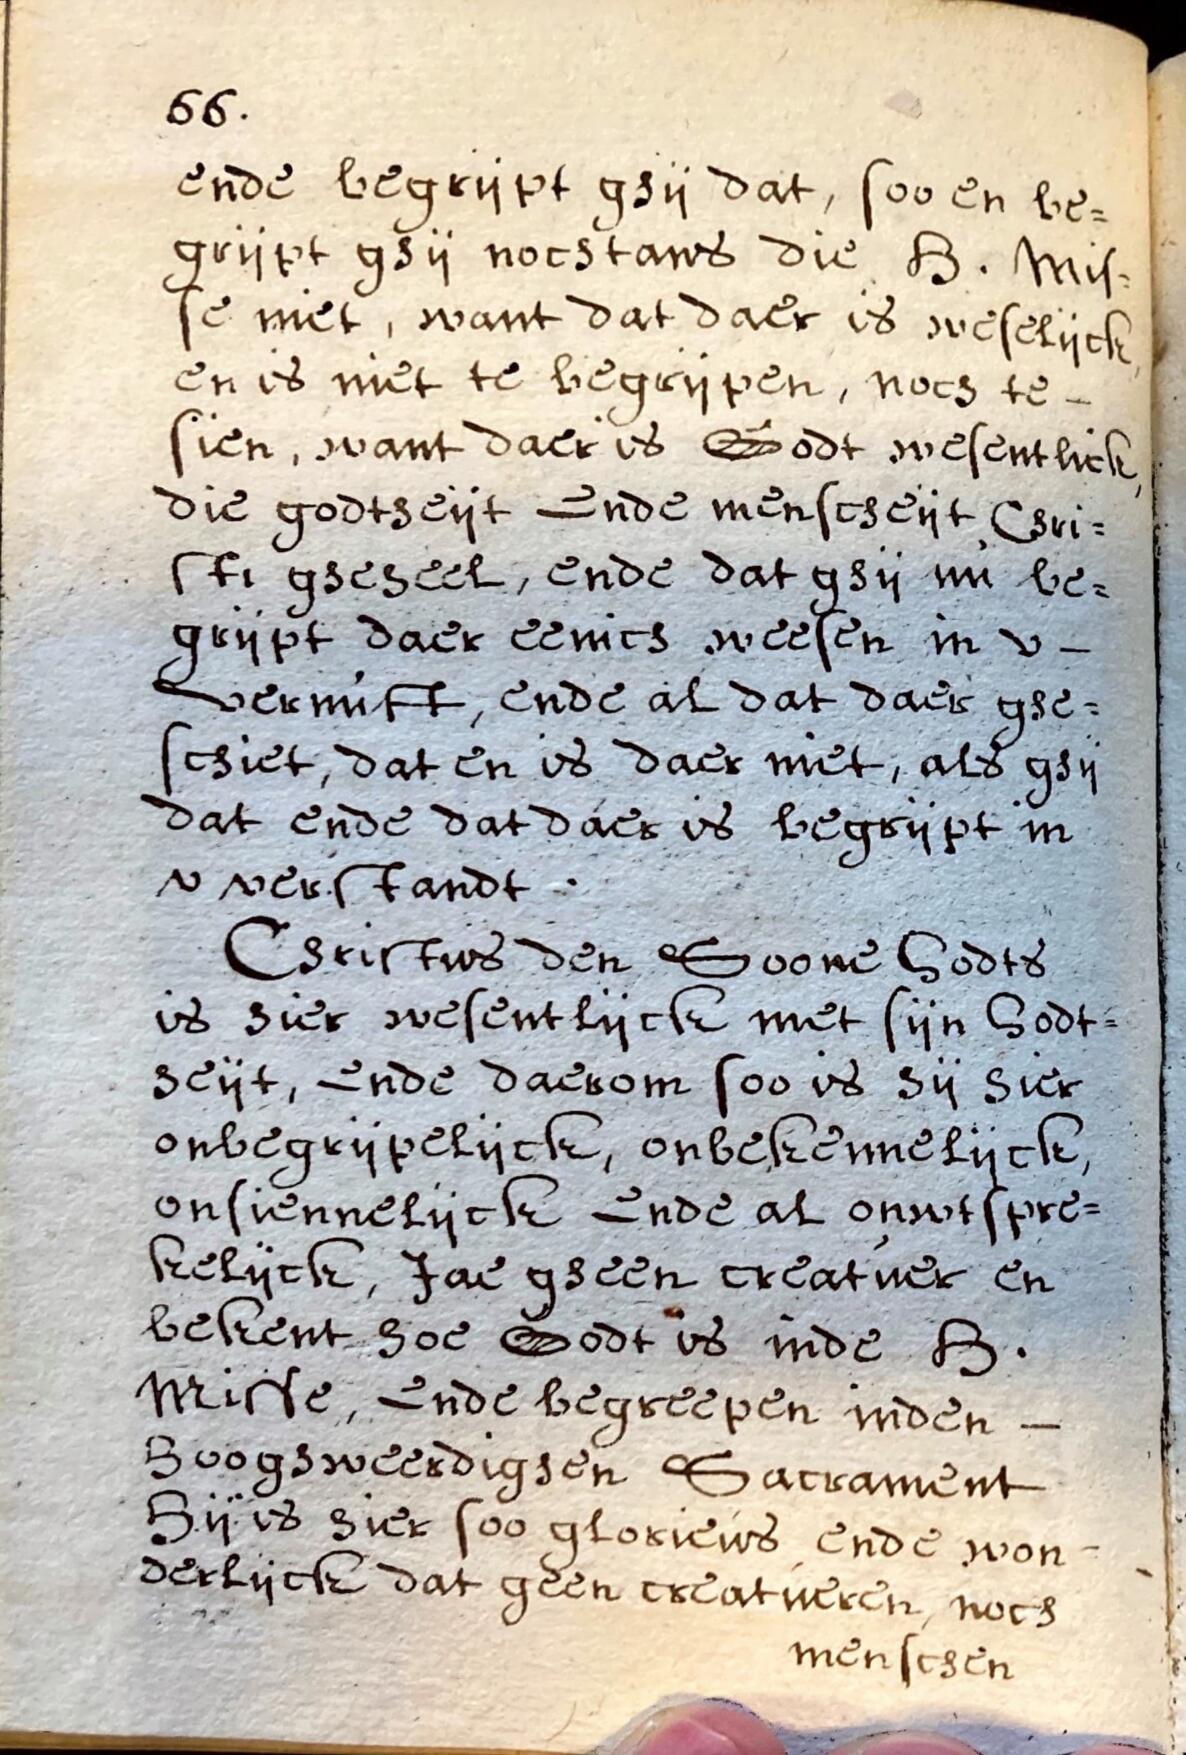 66.
ende begrijpt ghij dat, soo en be=
grijpt ghij nochtans die H. Mis=
se niet, want dat daer is weselijck,
en is niet te begrijpen, noch te –
sien, want daer is Godt wesentlick,
die godtheijt Ende menscheijt Chri=
sti gheheel, ende dat ghij nu be=
grijpt daer eenich weesen in v –
vernuft, ende al dat daer ghe=
schiet, dat en is daer niet, als ghij
dat ende dat daer is begrijpt in
v verstandt.
Christus den Soone Godts
is hier wesentlijck met sijn Godt=
heijt, Ende daerom soo is hij hier
onbegrijpelijck, onbekennelijck,
onsiennelijck Ende al onwtspre=
kelijck, Jae gheen creatuer en
bekent hoe Godt is inde H.
Misse, Ende begreepen inden –
Hooghweerdighen Sacrament
Hij is hier soo glorieus ende won–
derlijck dat geen creatueren, noch
menschen